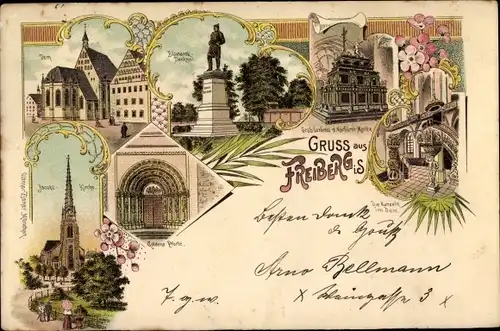 Dom
Bismarck
Denkmal
Grab-Denkmal d. Kurfürst. Moritz
GRUSS aus
FREIBERG i.S
Jacobi-Kirche.
Goldene Pforte.
Die Kanzeln
im Dom.
besten Dank
& Gruß
Arno Bellmann
x Weingasse 3 x